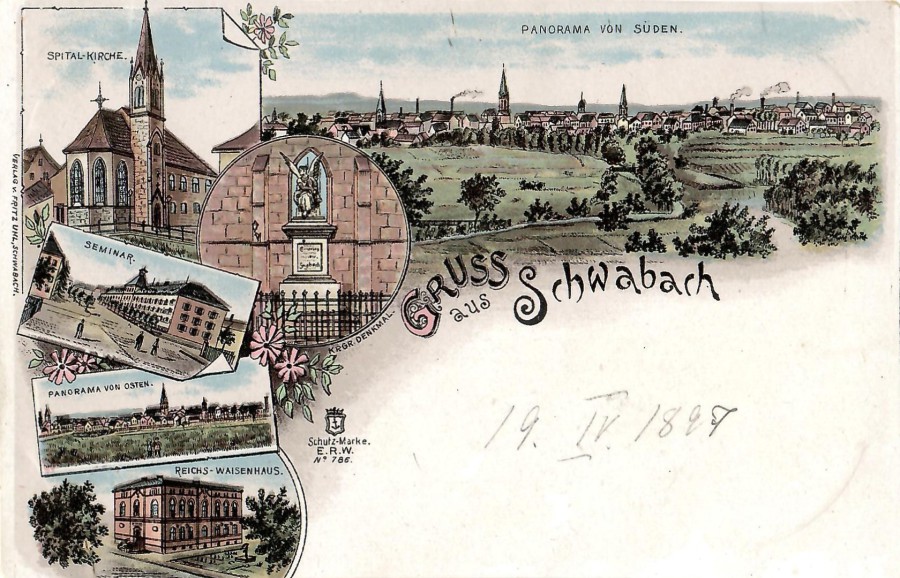 PANORAMA VON SÜDEN.
SPITAL-KIRCHE.
VERLAG V. FRITZ UHL, SCHWABACH.
SEMINAR.
GRUSS
aus
Schwabach
KRGR. DENKMAL.
PANORAMA VON OSTEN.
Schutz-Marke.
E.R.W.
No 786.
19. IV. 1897
REICHS-WAISENHAUS.